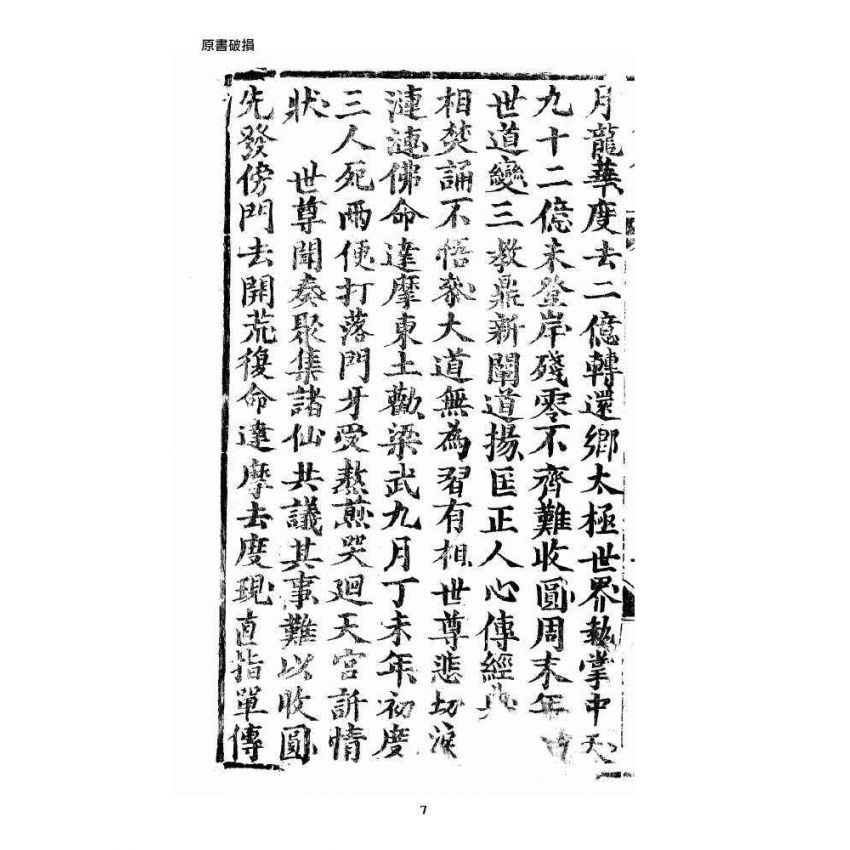 原書破損
月龍華度去二億轉還鄉太極世界執掌中天
九十二億未登岸殘零不齊難收圓周末年
世道變三教鼎新闡道揚匡正人心傳經典
相焚誦不悟叅大道無為習有相世尊悲切淚
漣漣佛命達摩東土勸梁武九月丁未年初度
三人死兩便打落門牙受熬煎哭迴天宮訴情
狀 世尊聞奏聚集諸仙共議其事難以收圓
先發傍門去開荒復命達摩去度現直指單傳
7